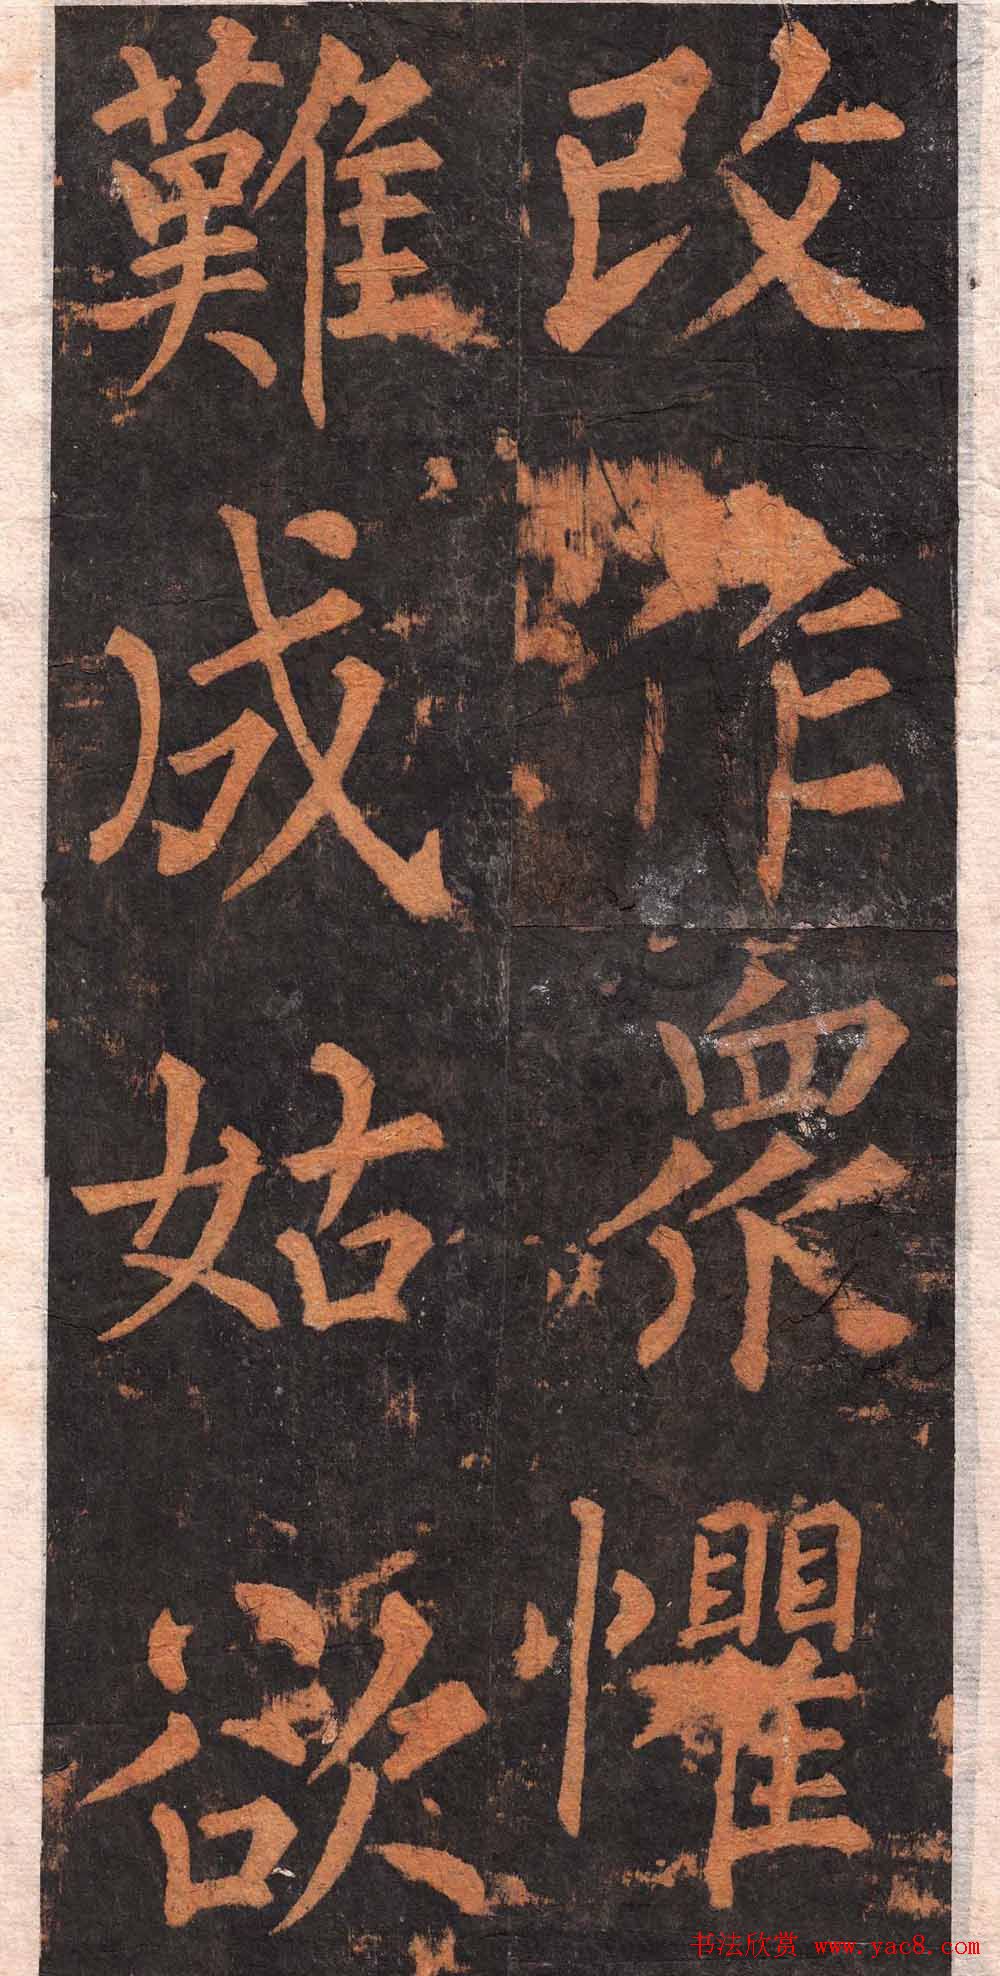 改作眾懼
難成姑欲
书法欣赏 www.yac8.com